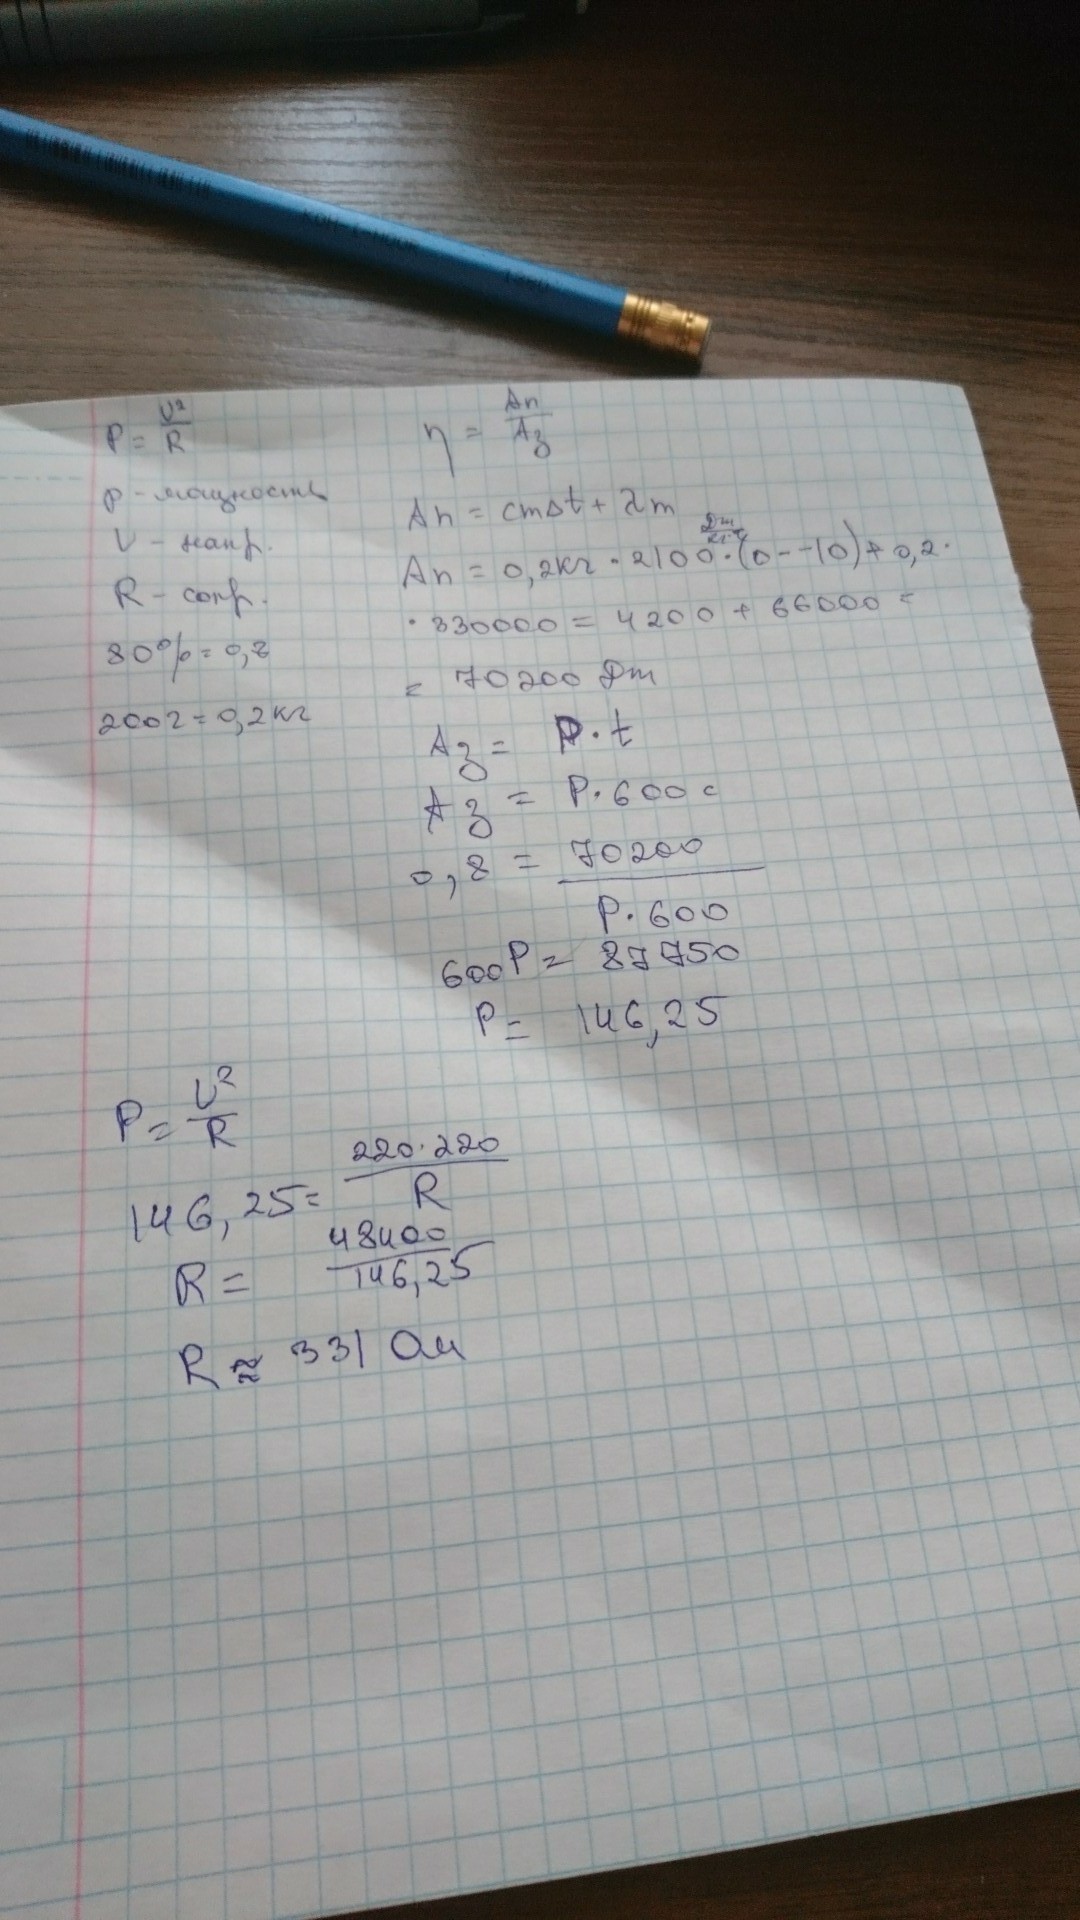 P = U²/R
P - мощность
U - напр.
R - сопр.
80% = 0,8
200г = 0,2кг
η = Ап/Аз
Ап = cmΔt + λm
Ап = 0,2кг · 2100 Дж/кг·°C · (0 - -10) + 0,2 ·
· 330000 = 4200 + 66000 =
= 70200 Дж
Аз = P · t
Аз = P · 600 с
0,8 = 70200/P · 600
600P = 87750
P = 146,25
P = U²/R
146,25 = 220 · 220/R
R = 48400/146,25
R ≈ 331 Ом